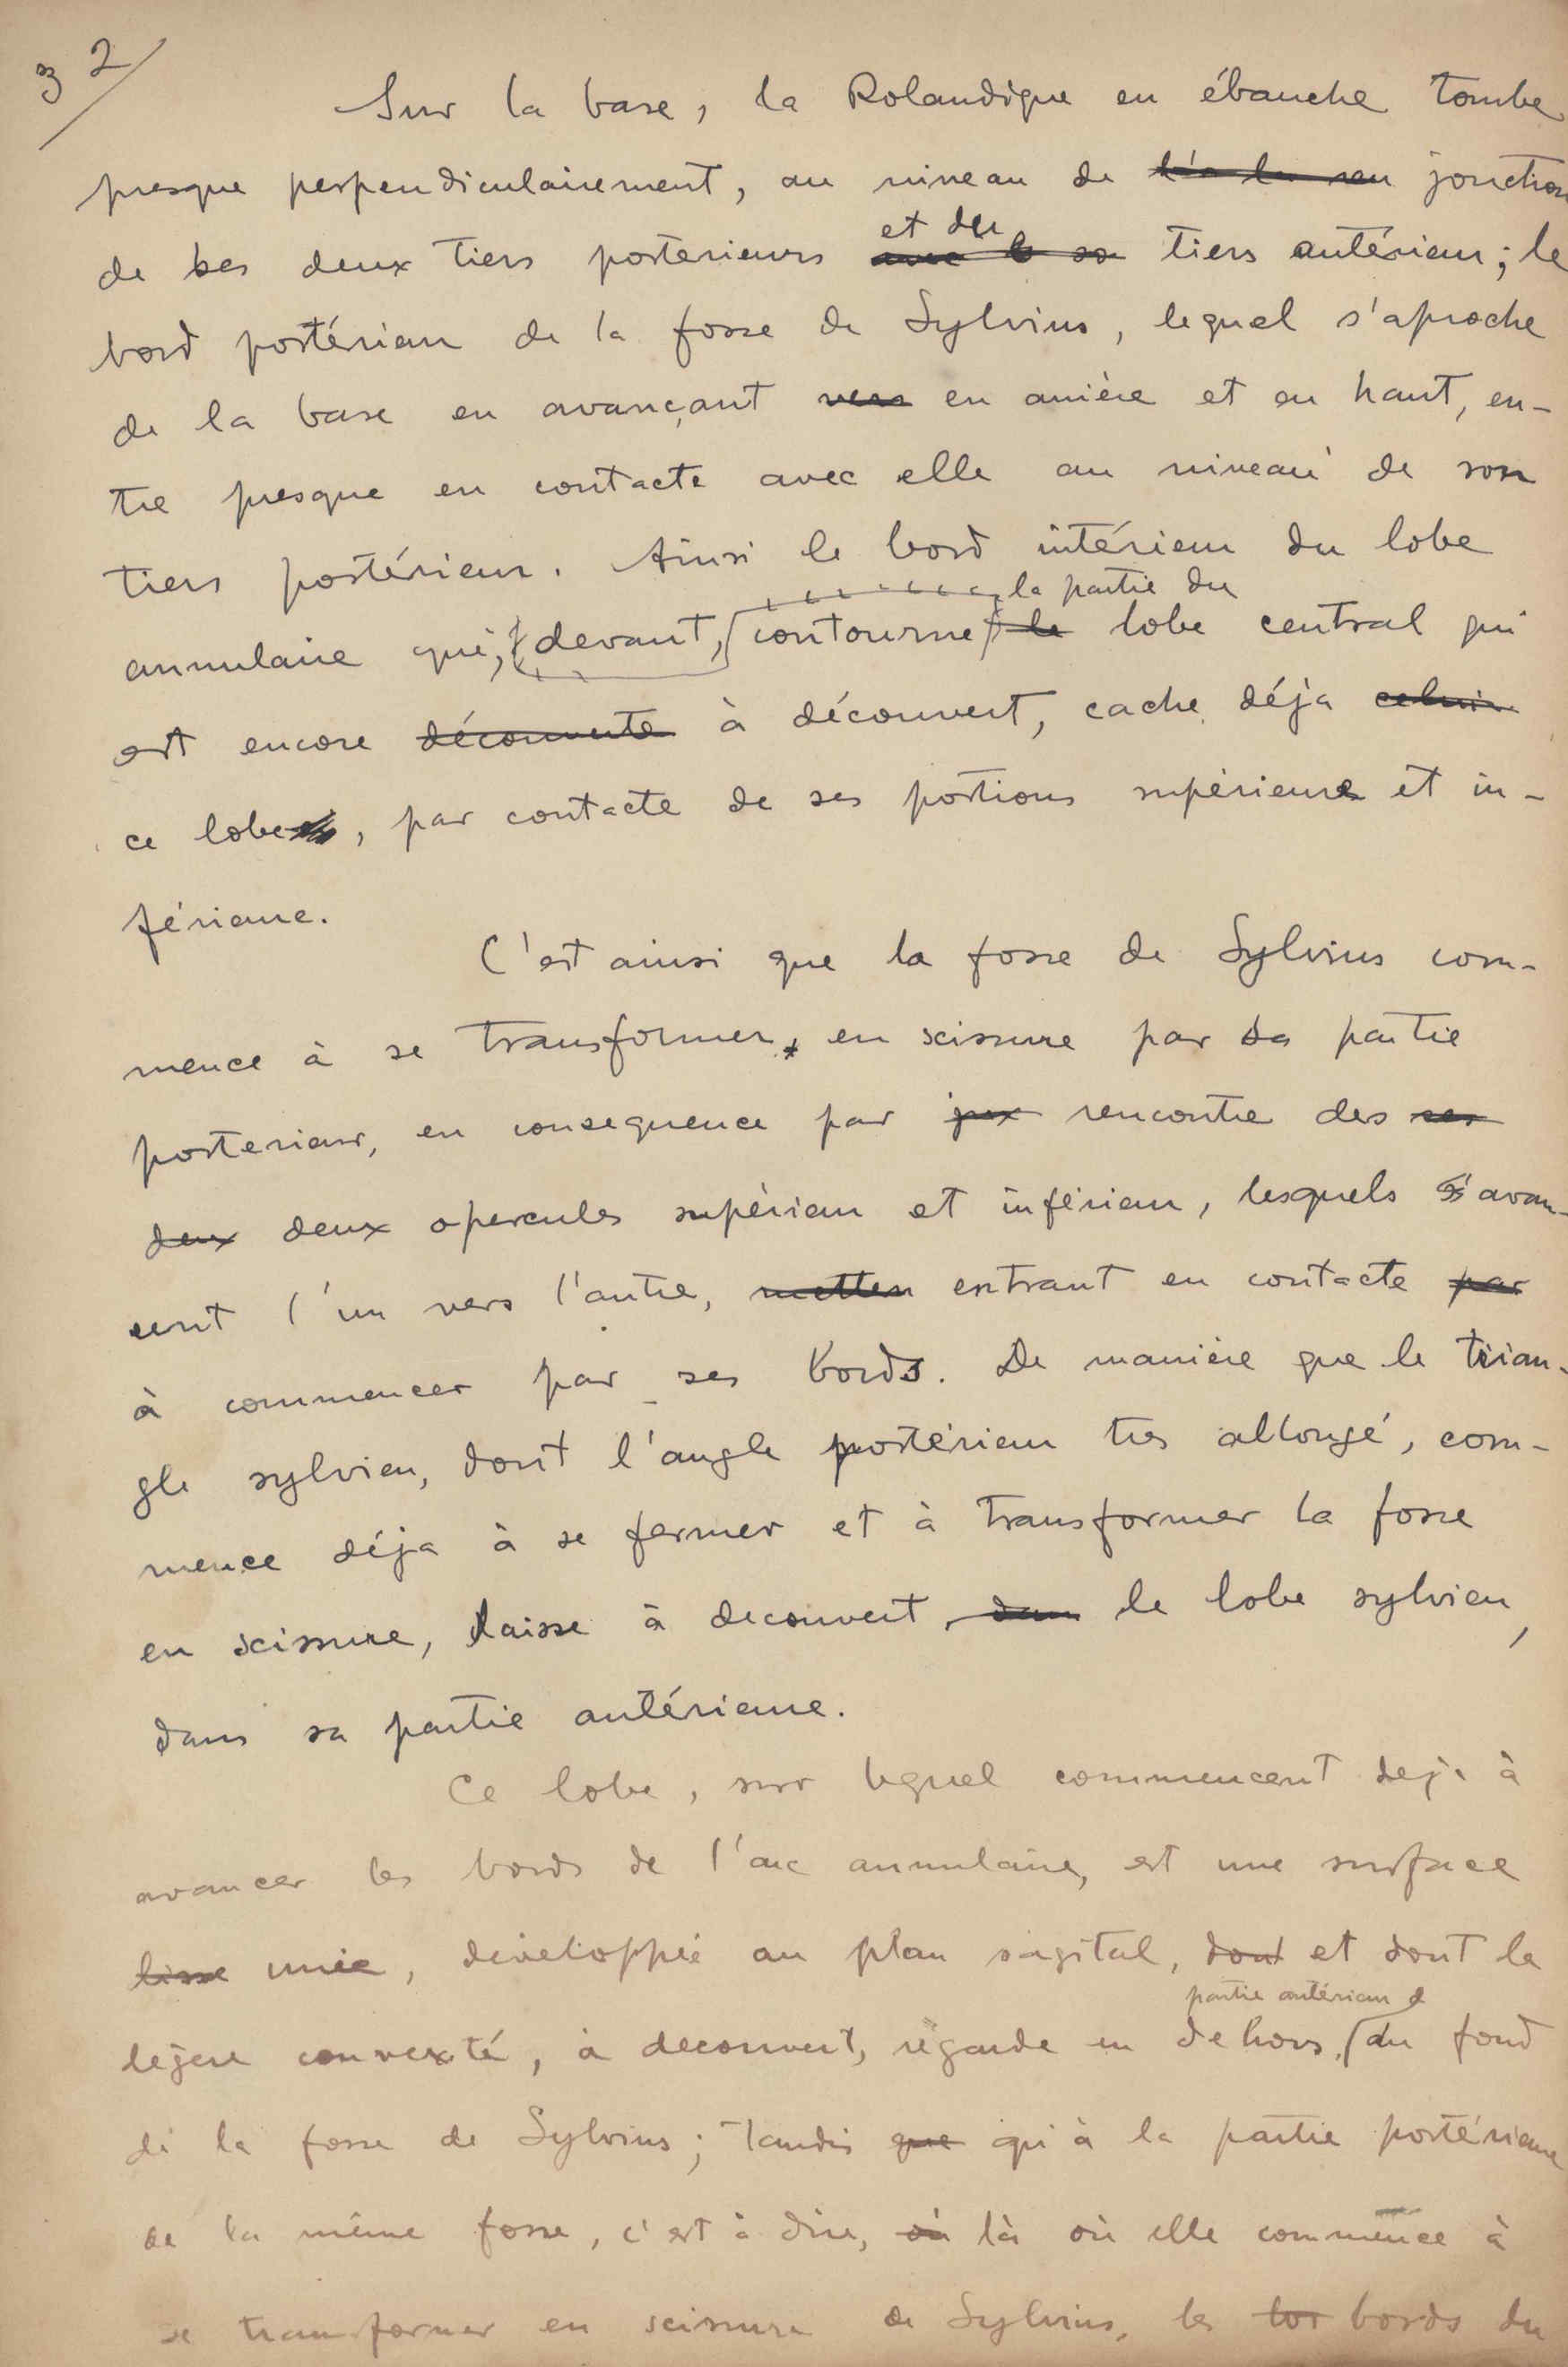 32
Sur la base, la Rolandique en ébauche tombe
presque perpendiculairement, au niveau de jonction
et du
de ses deux tiers posterieurs tiers antérieur; le
bord postérieur de la fosse de Sylvius, lequel s'aproche
de la base en avançant vers en arrière et en haut, en-
tre presque en contacte avec elle au niveau de son
tiers postérieur. Ainsi le bord intérieur du lobe
la partie du
annulaire qui, devant, contourne le lobe central qui
est encore découverte à découvert, cache déja celui
ce lobe, par contacte de ses portions supérieure et in-
férieure.
C'est ainsi que la fosse de Sylvius com-
mence à se transformer, en scissure par sa partie
posterieur, en consequence par rencontre des ses
deux deux opercules supérieur et inférieur, lesquels s'avan-
cent l'un vers l'autre, metten entrant en contacte par
à commencer par ses bords. De manière que le trian-
gle sylvien, dont l'angle postérieur tres allongé, com-
mence déja à se fermer et à transformer la fosse
en scissure, laisse à decouvert, dans le lobe sylvien,
dans sa partie antérieure.
Ce lobe, sur lequel commencent deja à
avancer les bords de l'arc annulaire, est une surface
lisse unie, développée au plan sagital, dont et dont la
partie antérieur d
legere convexité, à decouvert, regarde en dehors, du fond
de la fosse de Sylvius; tandis que qu'à la partie postérieure
de la même fosse, c'est à dire, où là où elle commence à
se transformer en scissure de Sylvius, les bor bords du